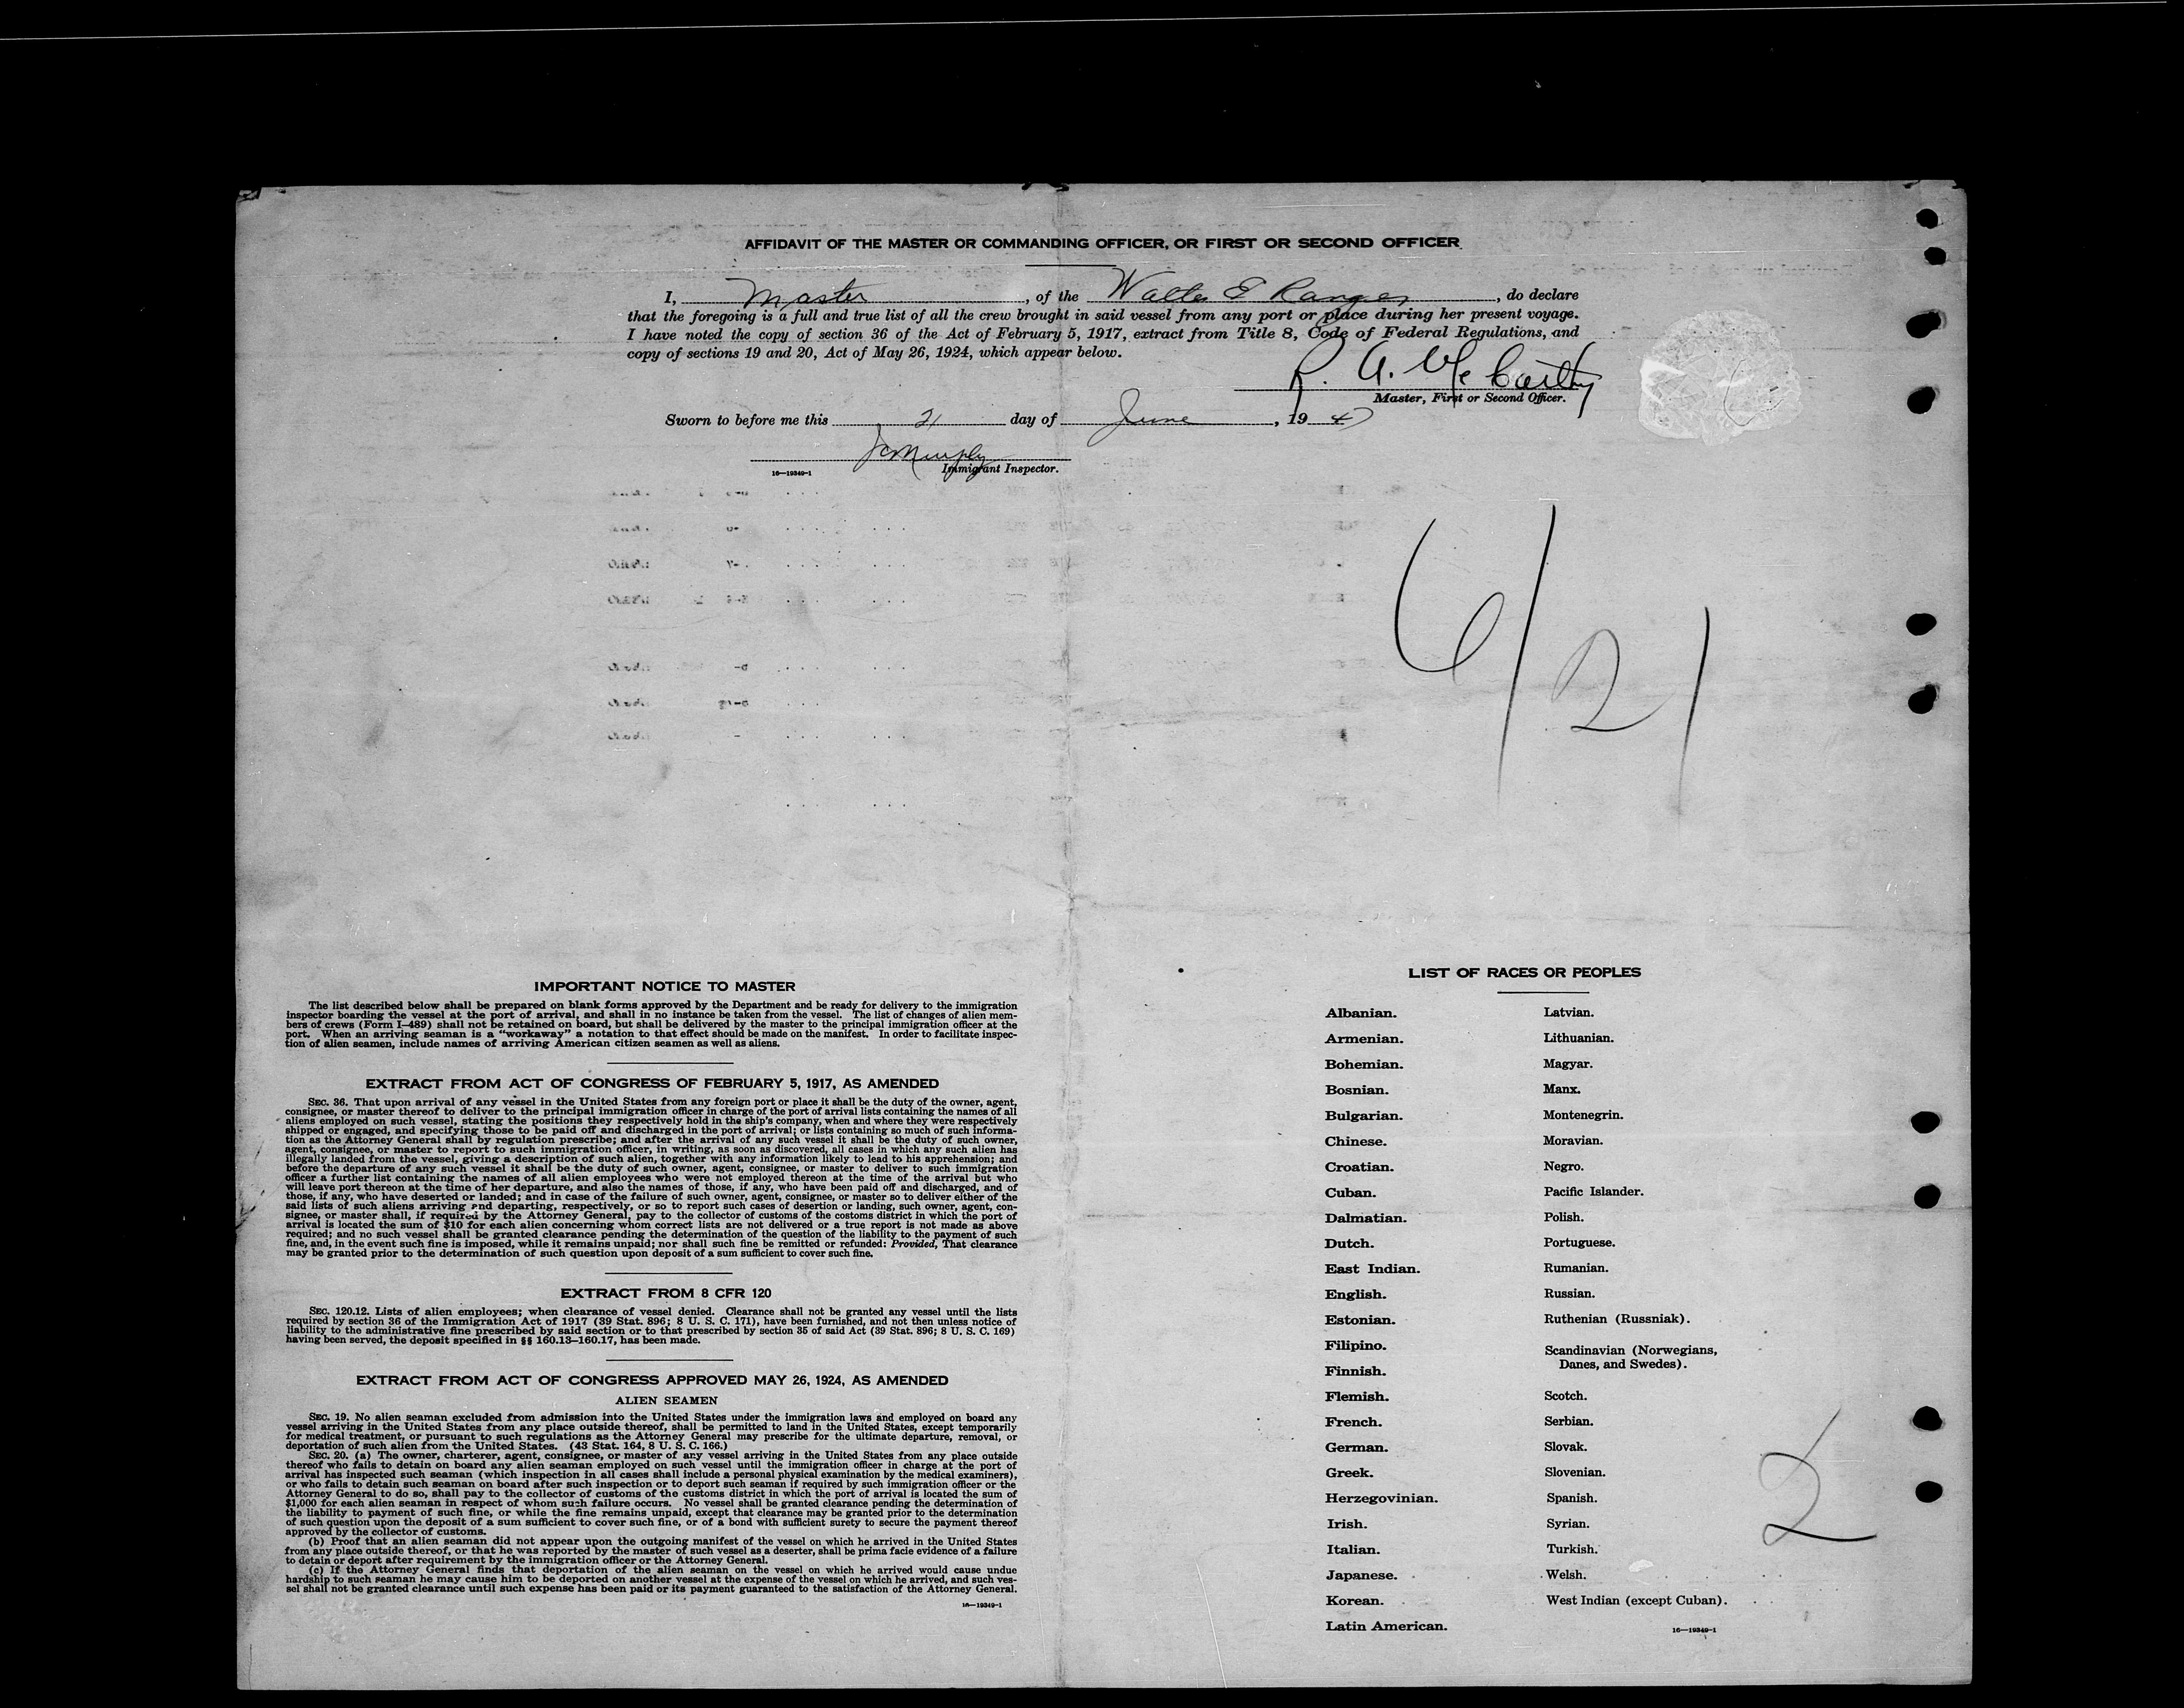 AFFIDAVIT OF THE MASTER OR COMMANDING OFFICER, OR FIRST OR SECOND OFFICER
I, Master, of the Walter E Ranger, do declare
that the foregoing is a full and true list of all the crew brought in said vessel from any port or place during her present voyage.
I have noted the copy of section 36 of the Act of February 5, 1917, extract from Title 8, Code of Federal Regulations, and
copy of sections 19 and 20, Act of May 26, 1924, which appear below.
R. A. McCarthy
Master, First or Second Officer.
Sworn to before me this 21 day of June, 19 47
Murphy
16—19349-1 Immigrant Inspector.
6/21
IMPORTANT NOTICE TO MASTER
The list described below shall be prepared on blank forms approved by the Department and be ready for delivery to the immigration
inspector boarding the vessel at the port of arrival, and shall in no instance be taken from the vessel. The list of changes of alien mem-
bers of crews (Form I-489) shall not be retained on board, but shall be delivered by the master to the principal immigration officer at the
port. When an arriving seaman is a "workaway" a notation to that effect should be made on the manifest. In order to facilitate inspec-
tion of alien seamen, include names of arriving American citizen seamen as well as aliens.
EXTRACT FROM ACT OF CONGRESS OF FEBRUARY 5, 1917, AS AMENDED
SEC. 36. That upon arrival of any vessel in the United States from any foreign port or place it shall be the duty of the owner, agent,
consignee, or master thereof to deliver to the principal immigration officer in charge of the port of arrival lists containing the names of all
aliens employed on such vessel, stating the positions they respectively hold in the ship's company, when and where they were respectively
shipped or engaged, and specifying those to be paid off and discharged in the port of arrival; or lists containing so much of such informa-
tion as the Attorney General shall by regulation prescribe; and after the arrival of any such vessel it shall be the duty of such owner,
agent, consignee, or master to report to such immigration officer, in writing, as soon as discovered, all cases in which any such alien has
illegally landed from the vessel, giving a description of such alien, together with any information likely to lead to his apprehension; and
before the departure of any such vessel it shall be the duty of such owner, agent, consignee, or master to deliver to such immigration
officer a further list containing the names of all alien employees who were not employed thereon at the time of the arrival but who
will leave port thereon at the time of her departure, and also the names of those, if any, who have been paid off and discharged, and of
those, if any, who have deserted or landed; and in case of the failure of such owner, agent, consignee, or master so to deliver either of the
said lists of such aliens arriving and departing, respectively, or so to report such cases of desertion or landing, such owner, agent, con-
signee, or master shall, if required by the Attorney General, pay to the collector of customs of the costoms district in which the port of
arrival is located the sum of $10 for each alien concerning whom correct lists are not delivered or a true report is not made as above
required; and no such vessel shall be granted clearance pending the determination of the question of the liability to the payment of such
fine, and, in the event such fine is imposed, while it remains unpaid; nor shall such fine be remitted or refunded: Provided, That clearance
may be granted prior to the determination of such question upon deposit of a sum sufficient to cover such fine.
EXTRACT FROM 8 CFR 120
SEC. 120.12. Lists of alien employees; when clearance of vessel denied. Clearance shall not be granted any vessel until the lists
required by section 36 of the Immigration Act of 1917 (39 Stat. 896; 8 U. S. C. 171), have been furnished, and not then unless notice of
liability to the administrative fine prescribed by said section or to that prescribed by section 35 of said Act (39 Stat. 896; 8 U. S. C. 169)
having been served, the deposit specified in §§ 160.13–160.17, has been made.
EXTRACT FROM ACT OF CONGRESS APPROVED MAY 26, 1924, AS AMENDED
ALIEN SEAMEN
SEC. 19. No alien seaman excluded from admission into the United States under the immigration laws and employed on board any
vessel arriving in the United States from any place outside thereof, shall be permitted to land in the United States, except temporarily
for medical treatment, or pursuant to such regulations as the Attorney General may prescribe for the ultimate departure, removal, or
deportation of such alien from the United States. (43 Stat. 164, 8 U. S. C. 166.)
SEC. 20. (a) The owner, charterer, agent, consignee, or master of any vessel arriving in the United States from any place outside
thereof who fails to detain on board any alien seaman employed on such vessel until the immigration officer in charge at the port of
arrival has inspected such seaman (which inspection in all cases shall include a personal physical examination by the medical examiners),
or who fails to detain such seaman on board after such inspection or to deport such seaman if required by such immigration officer or the
Attorney General to do so, shall pay to the collector of customs of the customs district in which the port of arrival is located the sum of
$1,000 for each alien seaman in respect of whom such failure occurs. No vessel shall be granted clearance pending the determination of
the liability to payment of such fine, or while the fine remains unpaid, except that clearance may be granted prior to the determination
of such question upon the deposit of a sum sufficient to cover such fine, or of a bond with sufficient surety to secure the payment thereof
approved by the collector of customs.
(b) Proof that an alien seaman did not appear upon the outgoing manifest of the vessel on which he arrived in the United States
from any place outside thereof, or that he was reported by the master of such vessel as a deserter, shall be prima facie evidence of a failure
to detain or deport after requirement by the immigration officer or the Attorney General.
(c) If the Attorney General finds that deportation of the alien seaman on the vessel on which he arrived would cause undue
hardship to such seaman he may cause him to be deported on another vessel at the expense of the vessel on which he arrived, and such ves-
sel shall not be granted clearance until such expense has been paid or its payment guaranteed to the satisfaction of the Attorney General.
16—19349-1
LIST OF RACES OR PEOPLES
Albanian.
Armenian.
Bohemian.
Bosnian.
Bulgarian.
Chinese.
Croatian.
Cuban.
Dalmatian.
Dutch.
East Indian.
English.
Estonian.
Filipino.
Finnish.
Flemish.
French.
German.
Greek.
Herzegovinian.
Irish.
Italian.
Japanese.
Korean.
Latin American.
Latvian.
Lithuanian.
Magyar.
Manx.
Montenegrin.
Moravian.
Negro.
Pacific Islander.
Polish.
Portuguese.
Rumanian.
Russian.
Ruthenian (Russniak).
Scandinavian (Norwegians,
Danes, and Swedes).
Scotch.
Serbian.
Slovak.
Slovenian.
Spanish.
Syrian.
Turkish.
Welsh.
West Indian (except Cuban).
16—19349-1
2